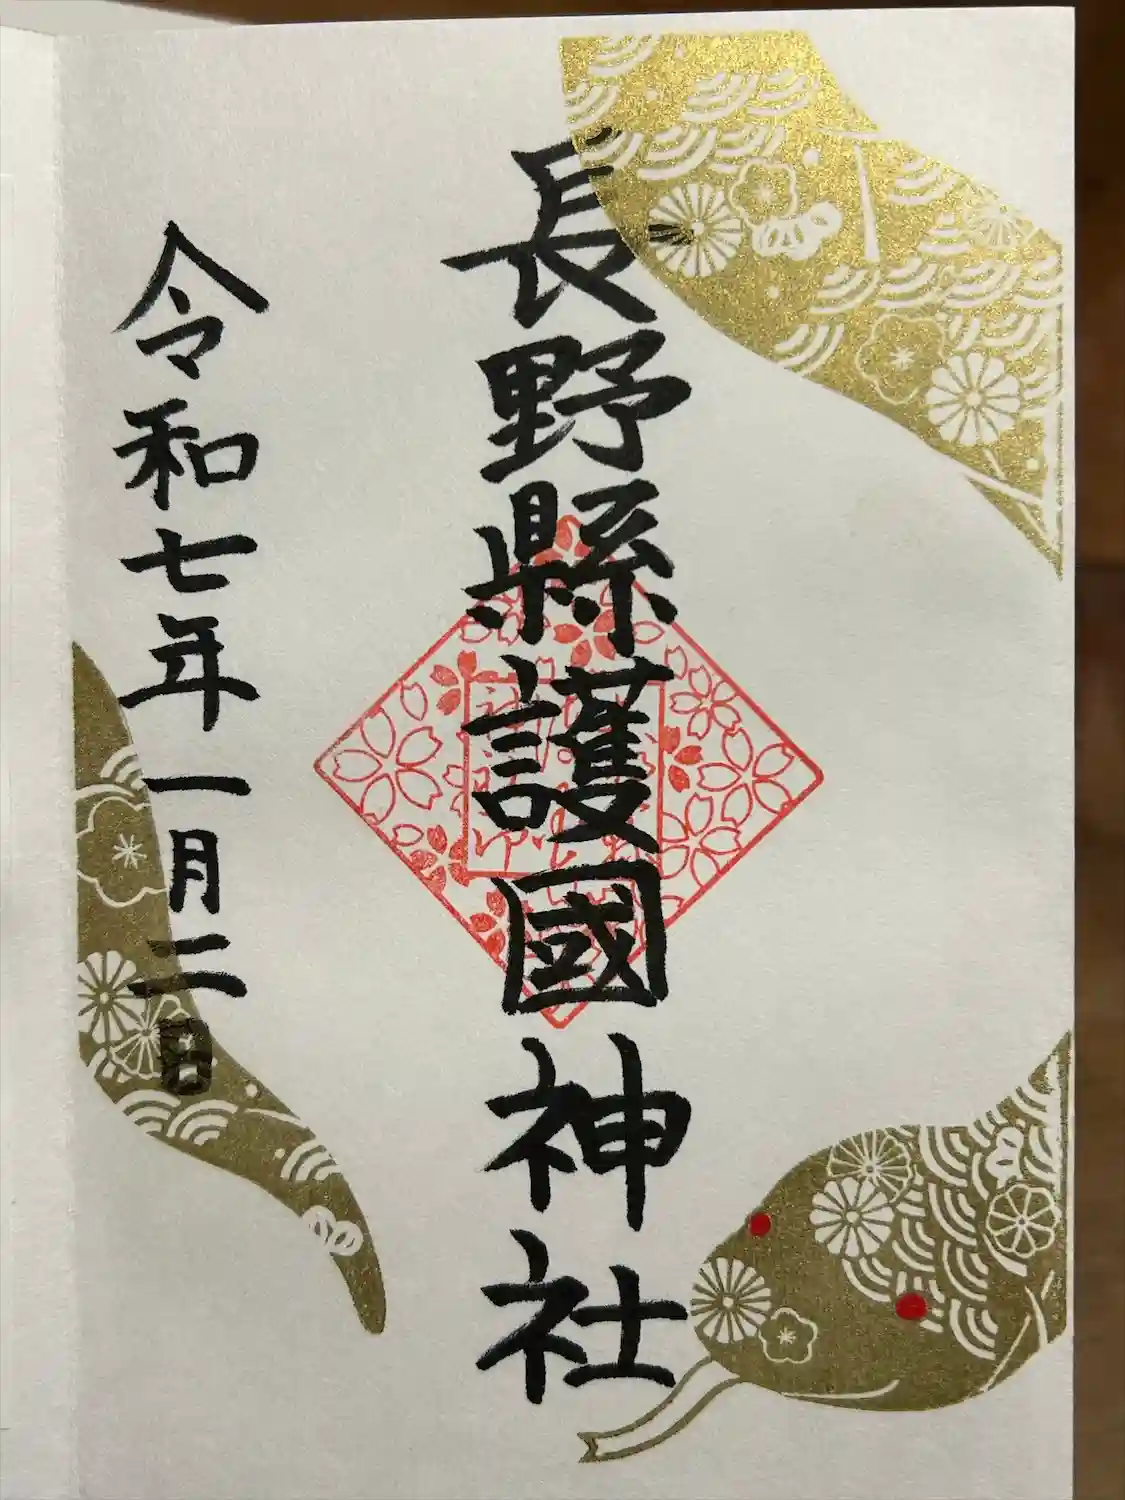 長野縣護國神社
令和七年一月二日